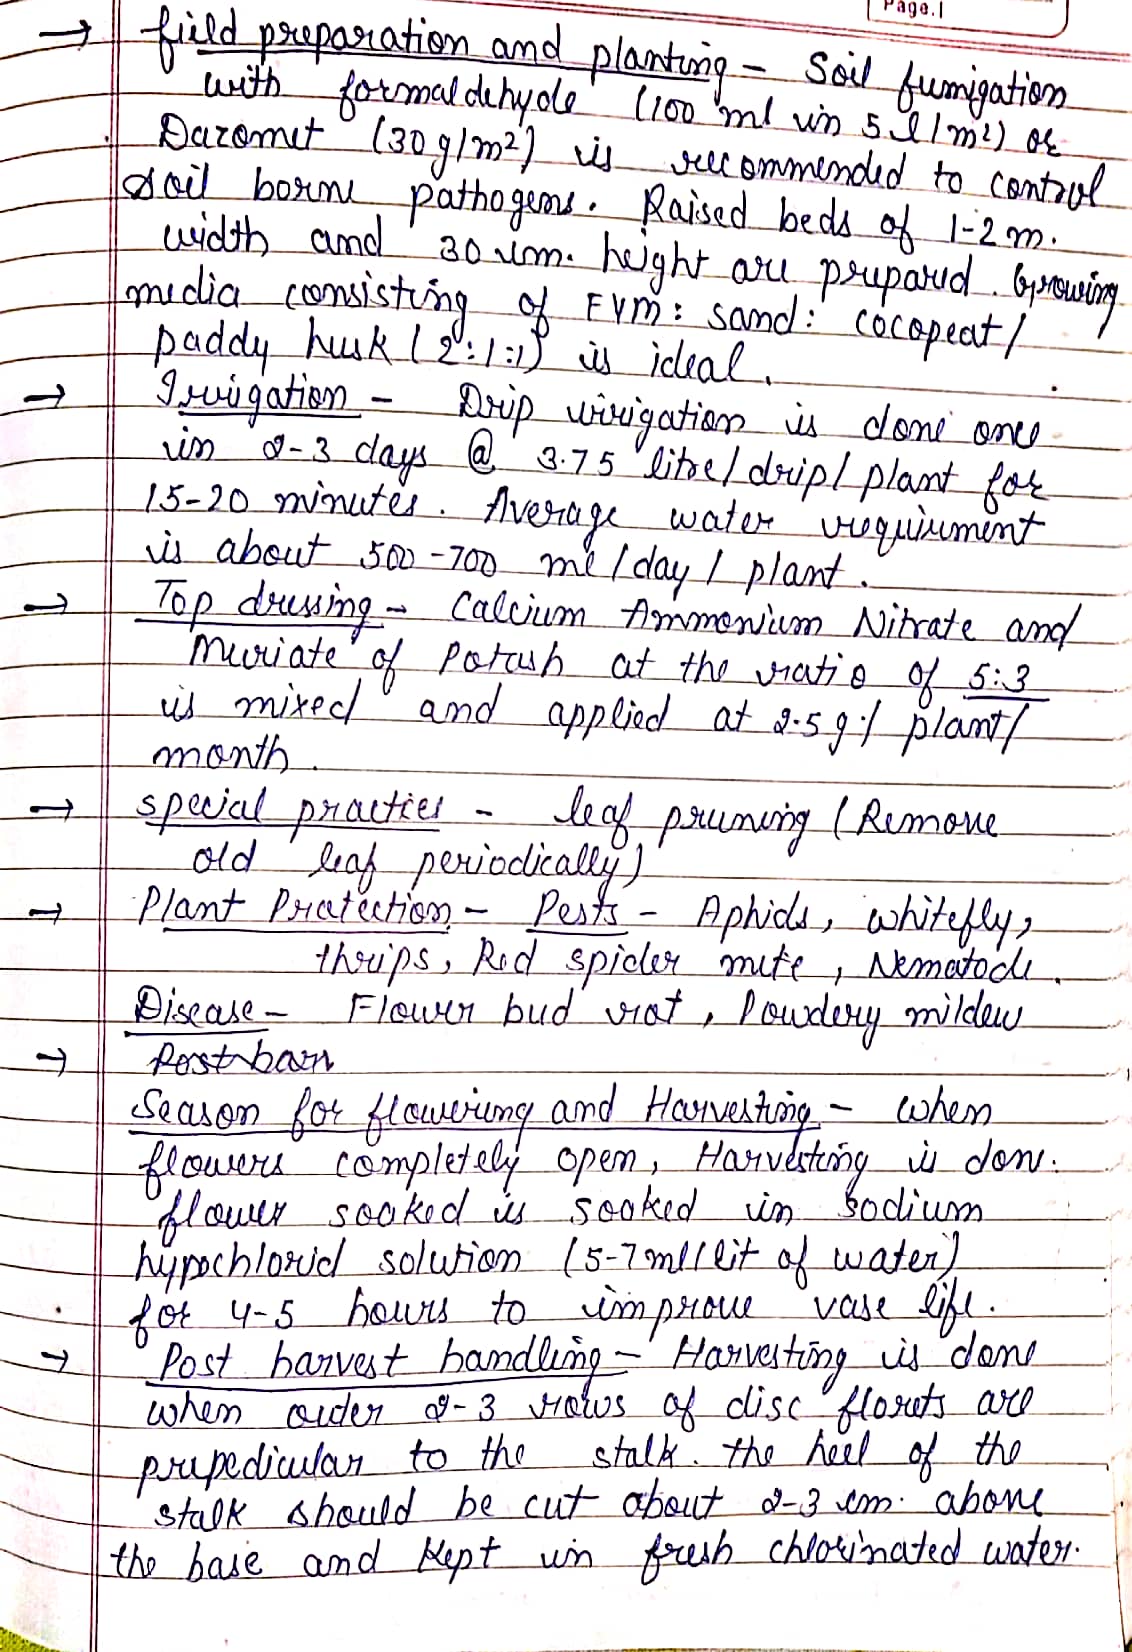 Page.1
→ field preparation and planting - Soil fumigation
with formaldehyde (100 ml in 5 l/m²) or
Dazomet (30 g/m²) is recommended to control
soil borne pathogens. Raised beds of 1-2 m.
width and 30 cm. height are prepared. Growing
media consisting of FYM: sand: cocopeat/
paddy husk (2:1:1) is ideal.
→ Irrigation - Drip irrigation is done once
in 2-3 days @ 3.75 litre/drip/plant for
15-20 minutes. Average water requirement
is about 500-700 ml/day/plant.
→ Top dressing - Calcium Ammonium Nitrate and
Muriate of Potash at the ratio of 5:3
is mixed and applied at 2.5 g./plant/
month.
→ special practies - leaf pruning (Remove
old leaf periodically)
→ Plant Protection - Pests - Aphids, whitefly,
thrips, Red spider mite, Nematode.
Disease - Flower bud rot, Powdery mildew
→ Post harv
Season for flowering and Harvesting - when
flowers completely open, Harvesting is done.
flower soaked is soaked in Sodium
hypochlorid solution (5-7ml/lit of water)
for 4-5 hours to improve vase life.
→ Post harvest handling - Harvesting is done
when outer 2-3 rows of disc florets are
prepedicular to the stalk. the heel of the
stalk should be cut about 2-3 cm. above
the base and kept in fresh chlorinated water.